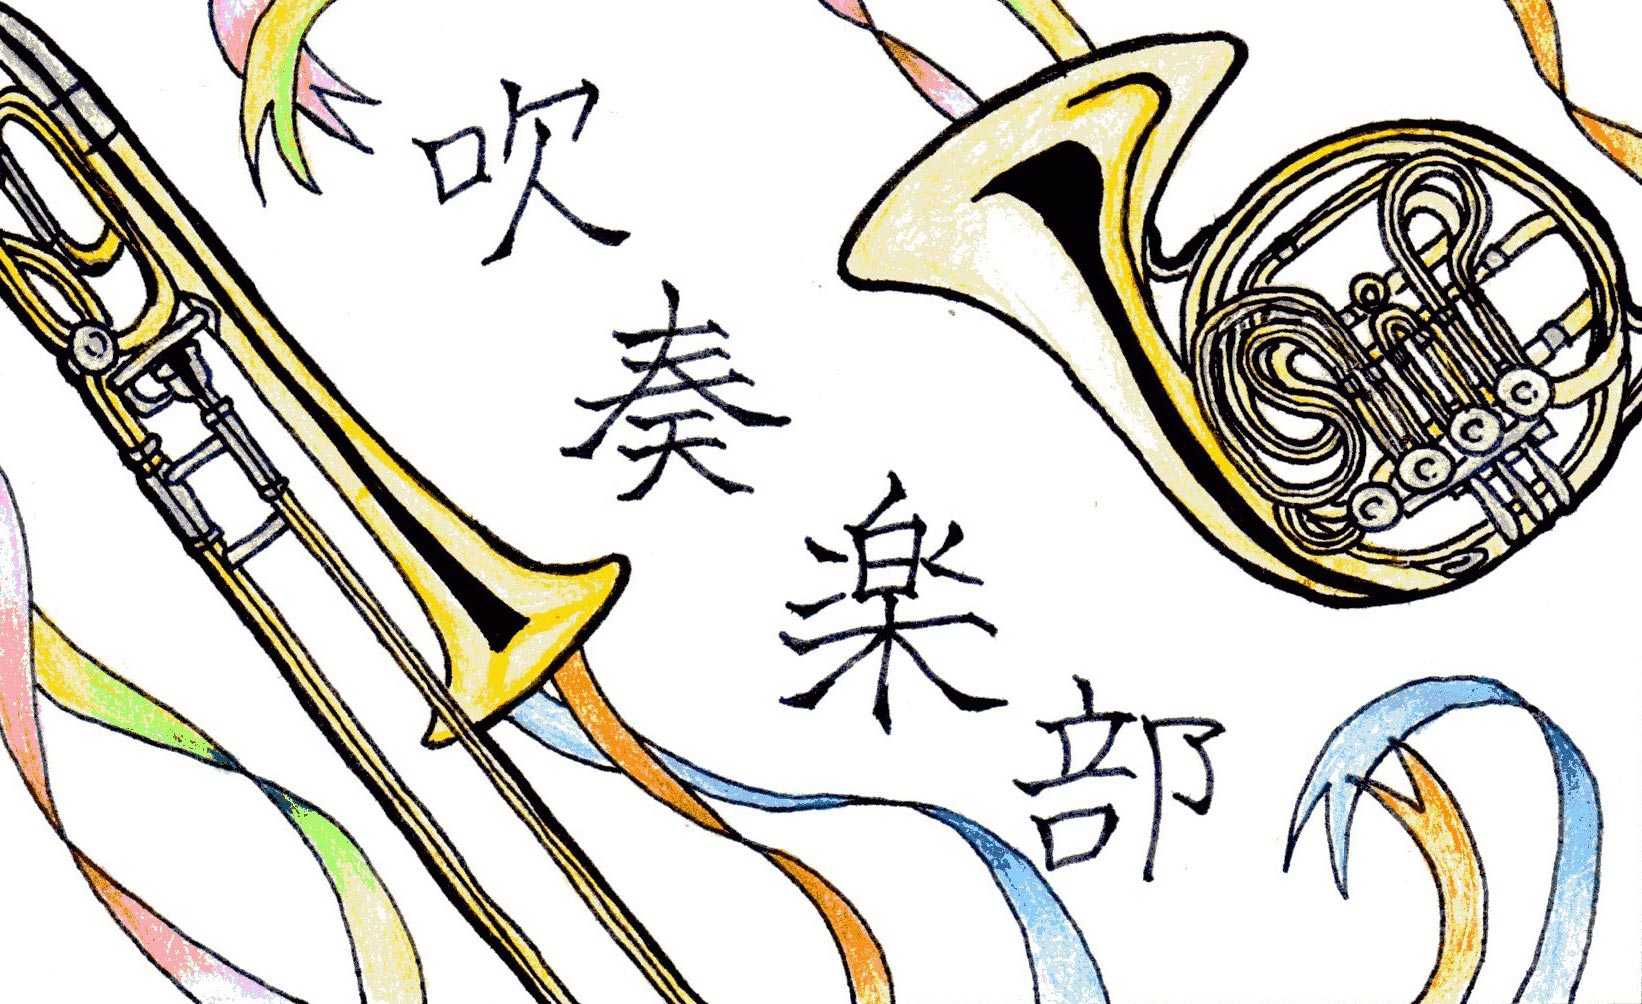 吹奏楽部